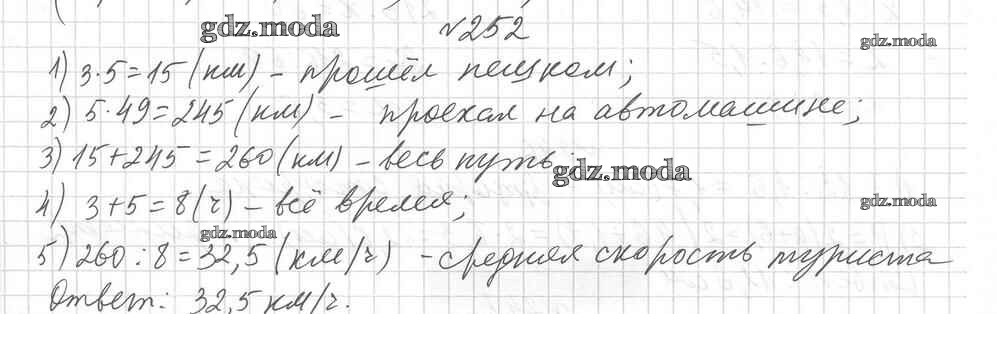 gdz.moda
№252
gdz.moda
1) 3·5=15 (км) - прошёл пешком;
2) 5·49=245 (км) - проехал на автомашине;
3) 15+245=260 (км) - весь путь;
gdz.moda
4) 3+5=8 (ч) - всё время;
gdz.moda
gdz.moda
5) 260:8=32,5 (км/ч) - средняя скорость туриста
Ответ: 32,5 км/ч.